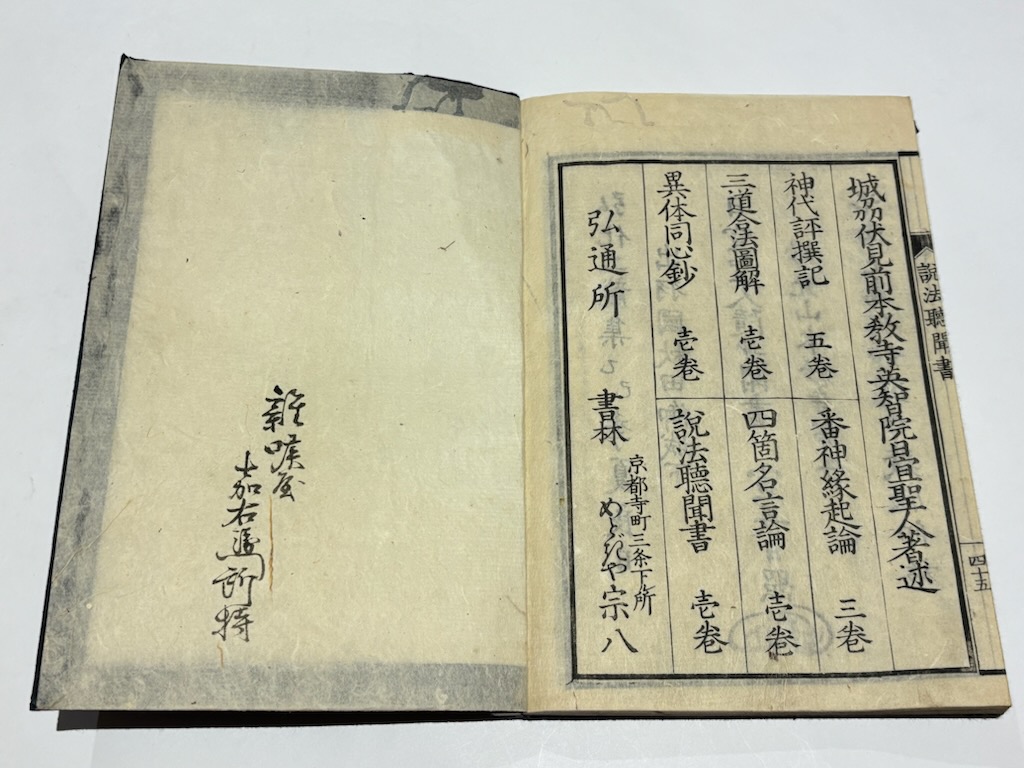 城刕伏見前本教寺英智院日宜聖人著述
神代評撰記 五巻
番神縁起論 三巻
三道合法圖解 壱巻
四箇名言論 壱巻
異体同心鈔 壱巻
説法聴聞書 壱巻
弘通所 書林 京都寺町三条下ル所 めどぎや宗八
説法聴聞書
四十五
屋
加右衛門所持